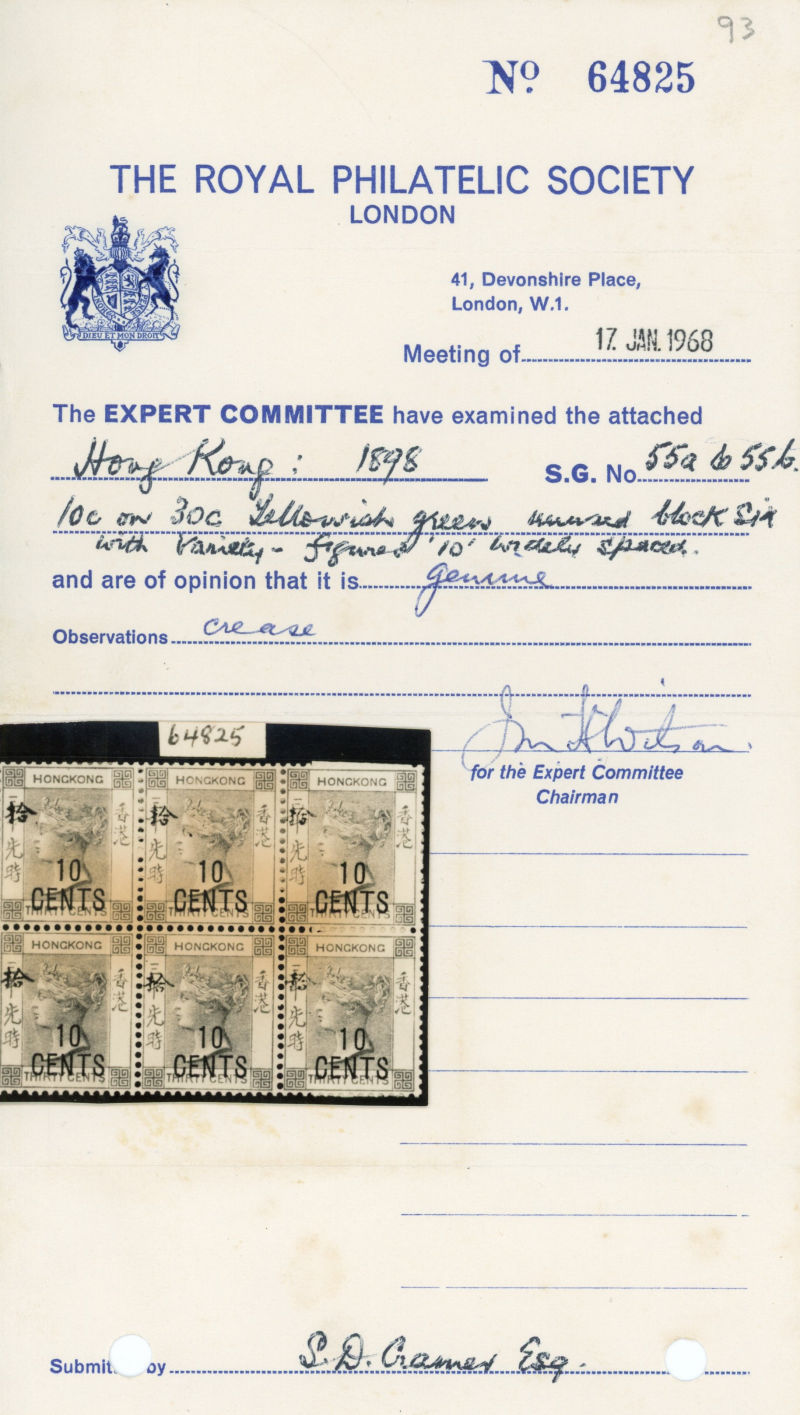 93
Nº 64825
THE ROYAL PHILATELIC SOCIETY
LONDON
DIEU ET MON DROIT
41, Devonshire Place,
London, W.1.
Meeting of 17. JAN. 1968
The EXPERT COMMITTEE have examined the attached
Hong Kong: 1898 S.G. No 55a to 55b.
10c on 30c Yellowish green unused block six
with variety - figures '10' widely spaced.
and are of opinion that it is genuine
Observations crease
for the Expert Committee
Chairman
64825
HONGKONG HONGKONG HONGKONG
拾 香港 拾 香港 拾 香港
先時 先時 先時
10 10 10
CENTS CENTS CENTS
THIRTY CENTS THIRTY CENTS THIRTY CENTS
HONGKONG HONGKONG HONGKONG
拾 香港 拾 香港 拾 香港
先時 先時 先時
10 10 10
CENTS CENTS CENTS
THIRTY CENTS THIRTY CENTS THIRTY CENTS
Submit by S. D. Cramer Esq.